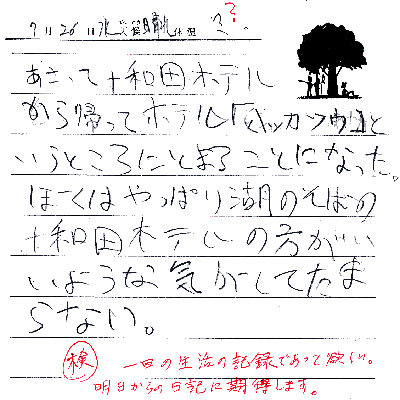 7月26日水
??
あさって十和田ホテル
から帰ってホテル「ハッカツ
というところにとまることになった。
ぼくはやっぱり湖のそばの
十和田ホテルの方がい
いような気がしてたま
らない。
検 一日の生活の記録であって欲しい。
明日からの日記に期待します。